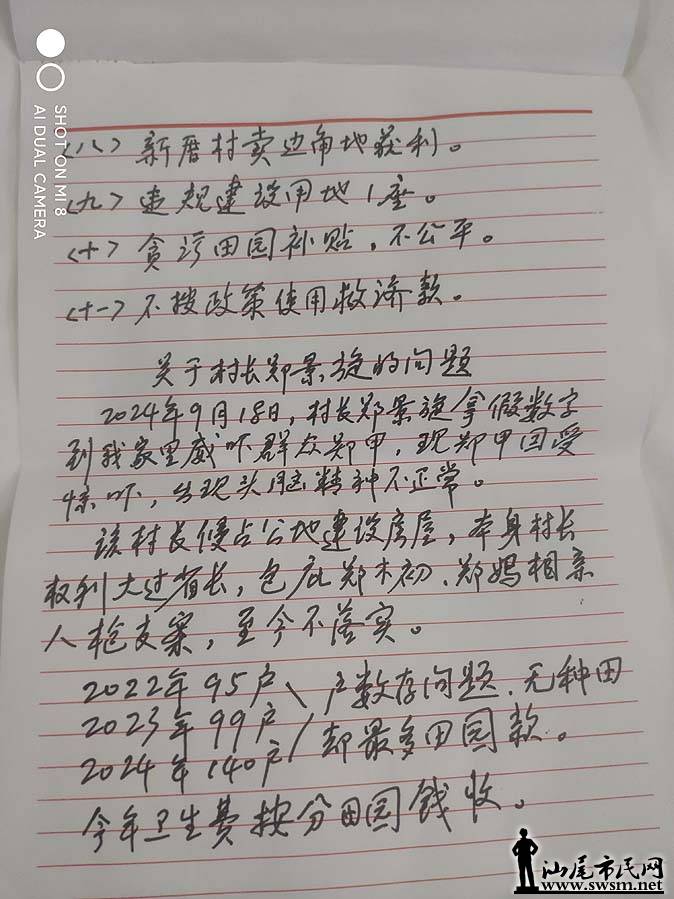 <八> 新厝村卖边角地获利。
<九> 违规建设用地1座。
<十> 贪污田园补贴，不公平。
<十一> 不按政策使用救济款。
关于村长郑景旋的问题
2024年9月18日，村长郑景旋拿假数字
到我家里威吓群众郑甲，现郑甲因受
惊吓，出现头脑精神不正常。
该村长侵占公地建设房屋，本身村长
权利大过省长，包庇郑木初、郑妈相亲
人枪支案，至今不落实。
2022年95户 \ 户数存问题、无种田
2023年99户
2024年140户 / 却最多田园款。
今年卫生费按分田园钱收。
SHOT ON MI 8
AI DUAL CAMERA
汕尾市民网
www.swsm.net